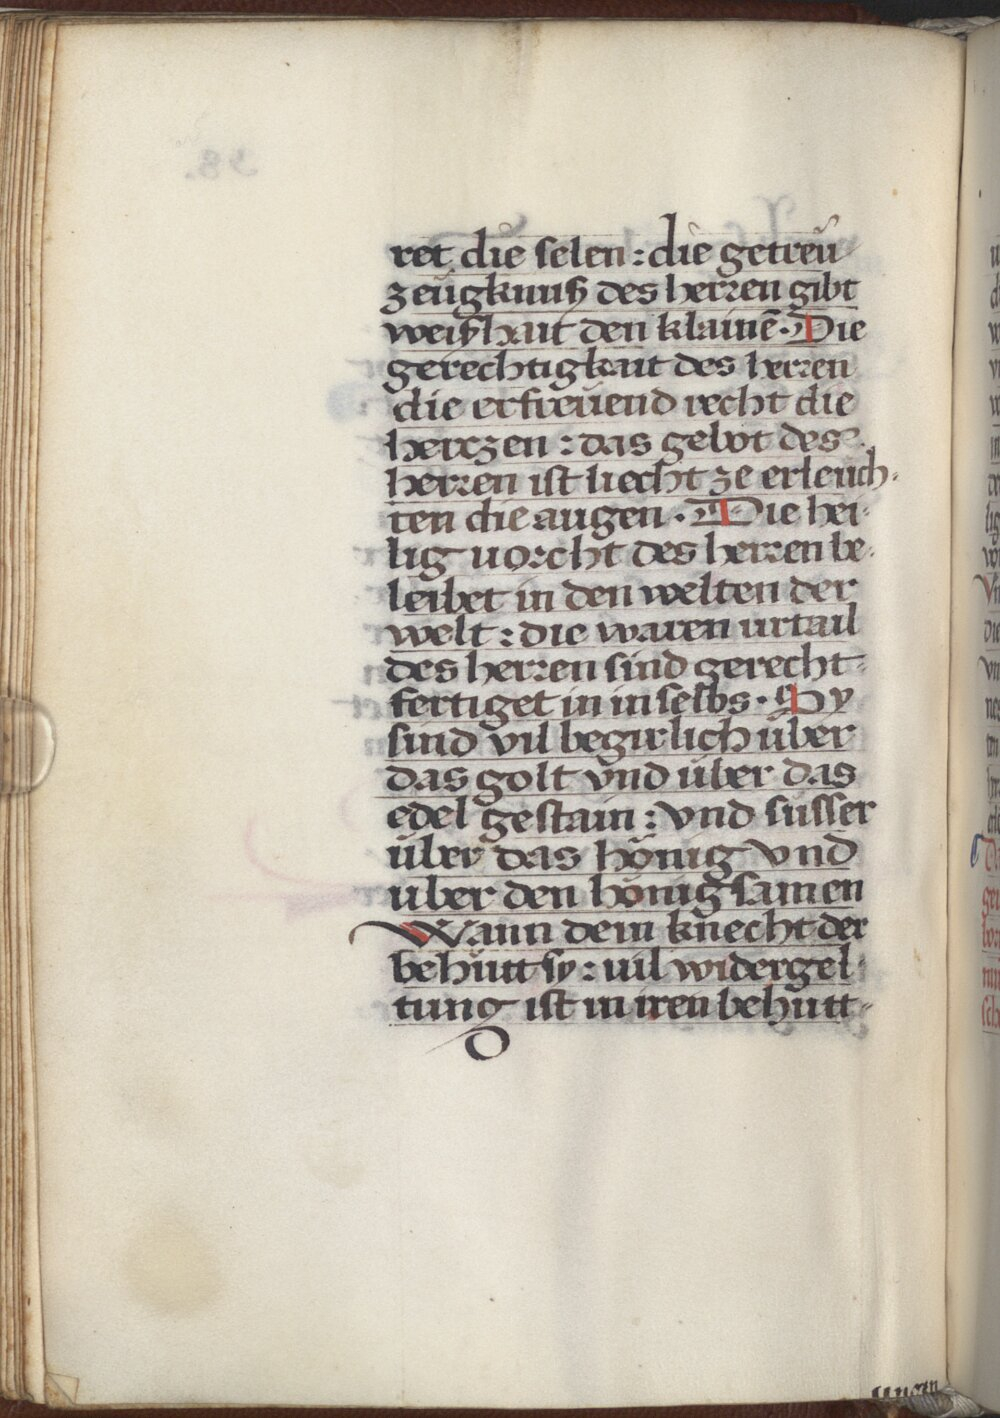 ret die selen : die getreü
zeügknuß des herren gibt
weißhait den klainē · Die
gerechtigkait des herren
die erfreüend recht die
herczen : das gebot des
herren ist liecht ze erleüch-
ten die augen · Die hei-
lig uorcht des herren be-
leibet in den welten der
welt : die waren urtail
des herren sind gerecht-
fertiget in in selbs · Sy
sind vil begirlich über
das golt vnd über das
edel gestain : vnd süsser
über das hönig vnd
über den hönigsamen
Wann dein knecht der
behütt sy : uil widergel-
tung ist in iren behütt-